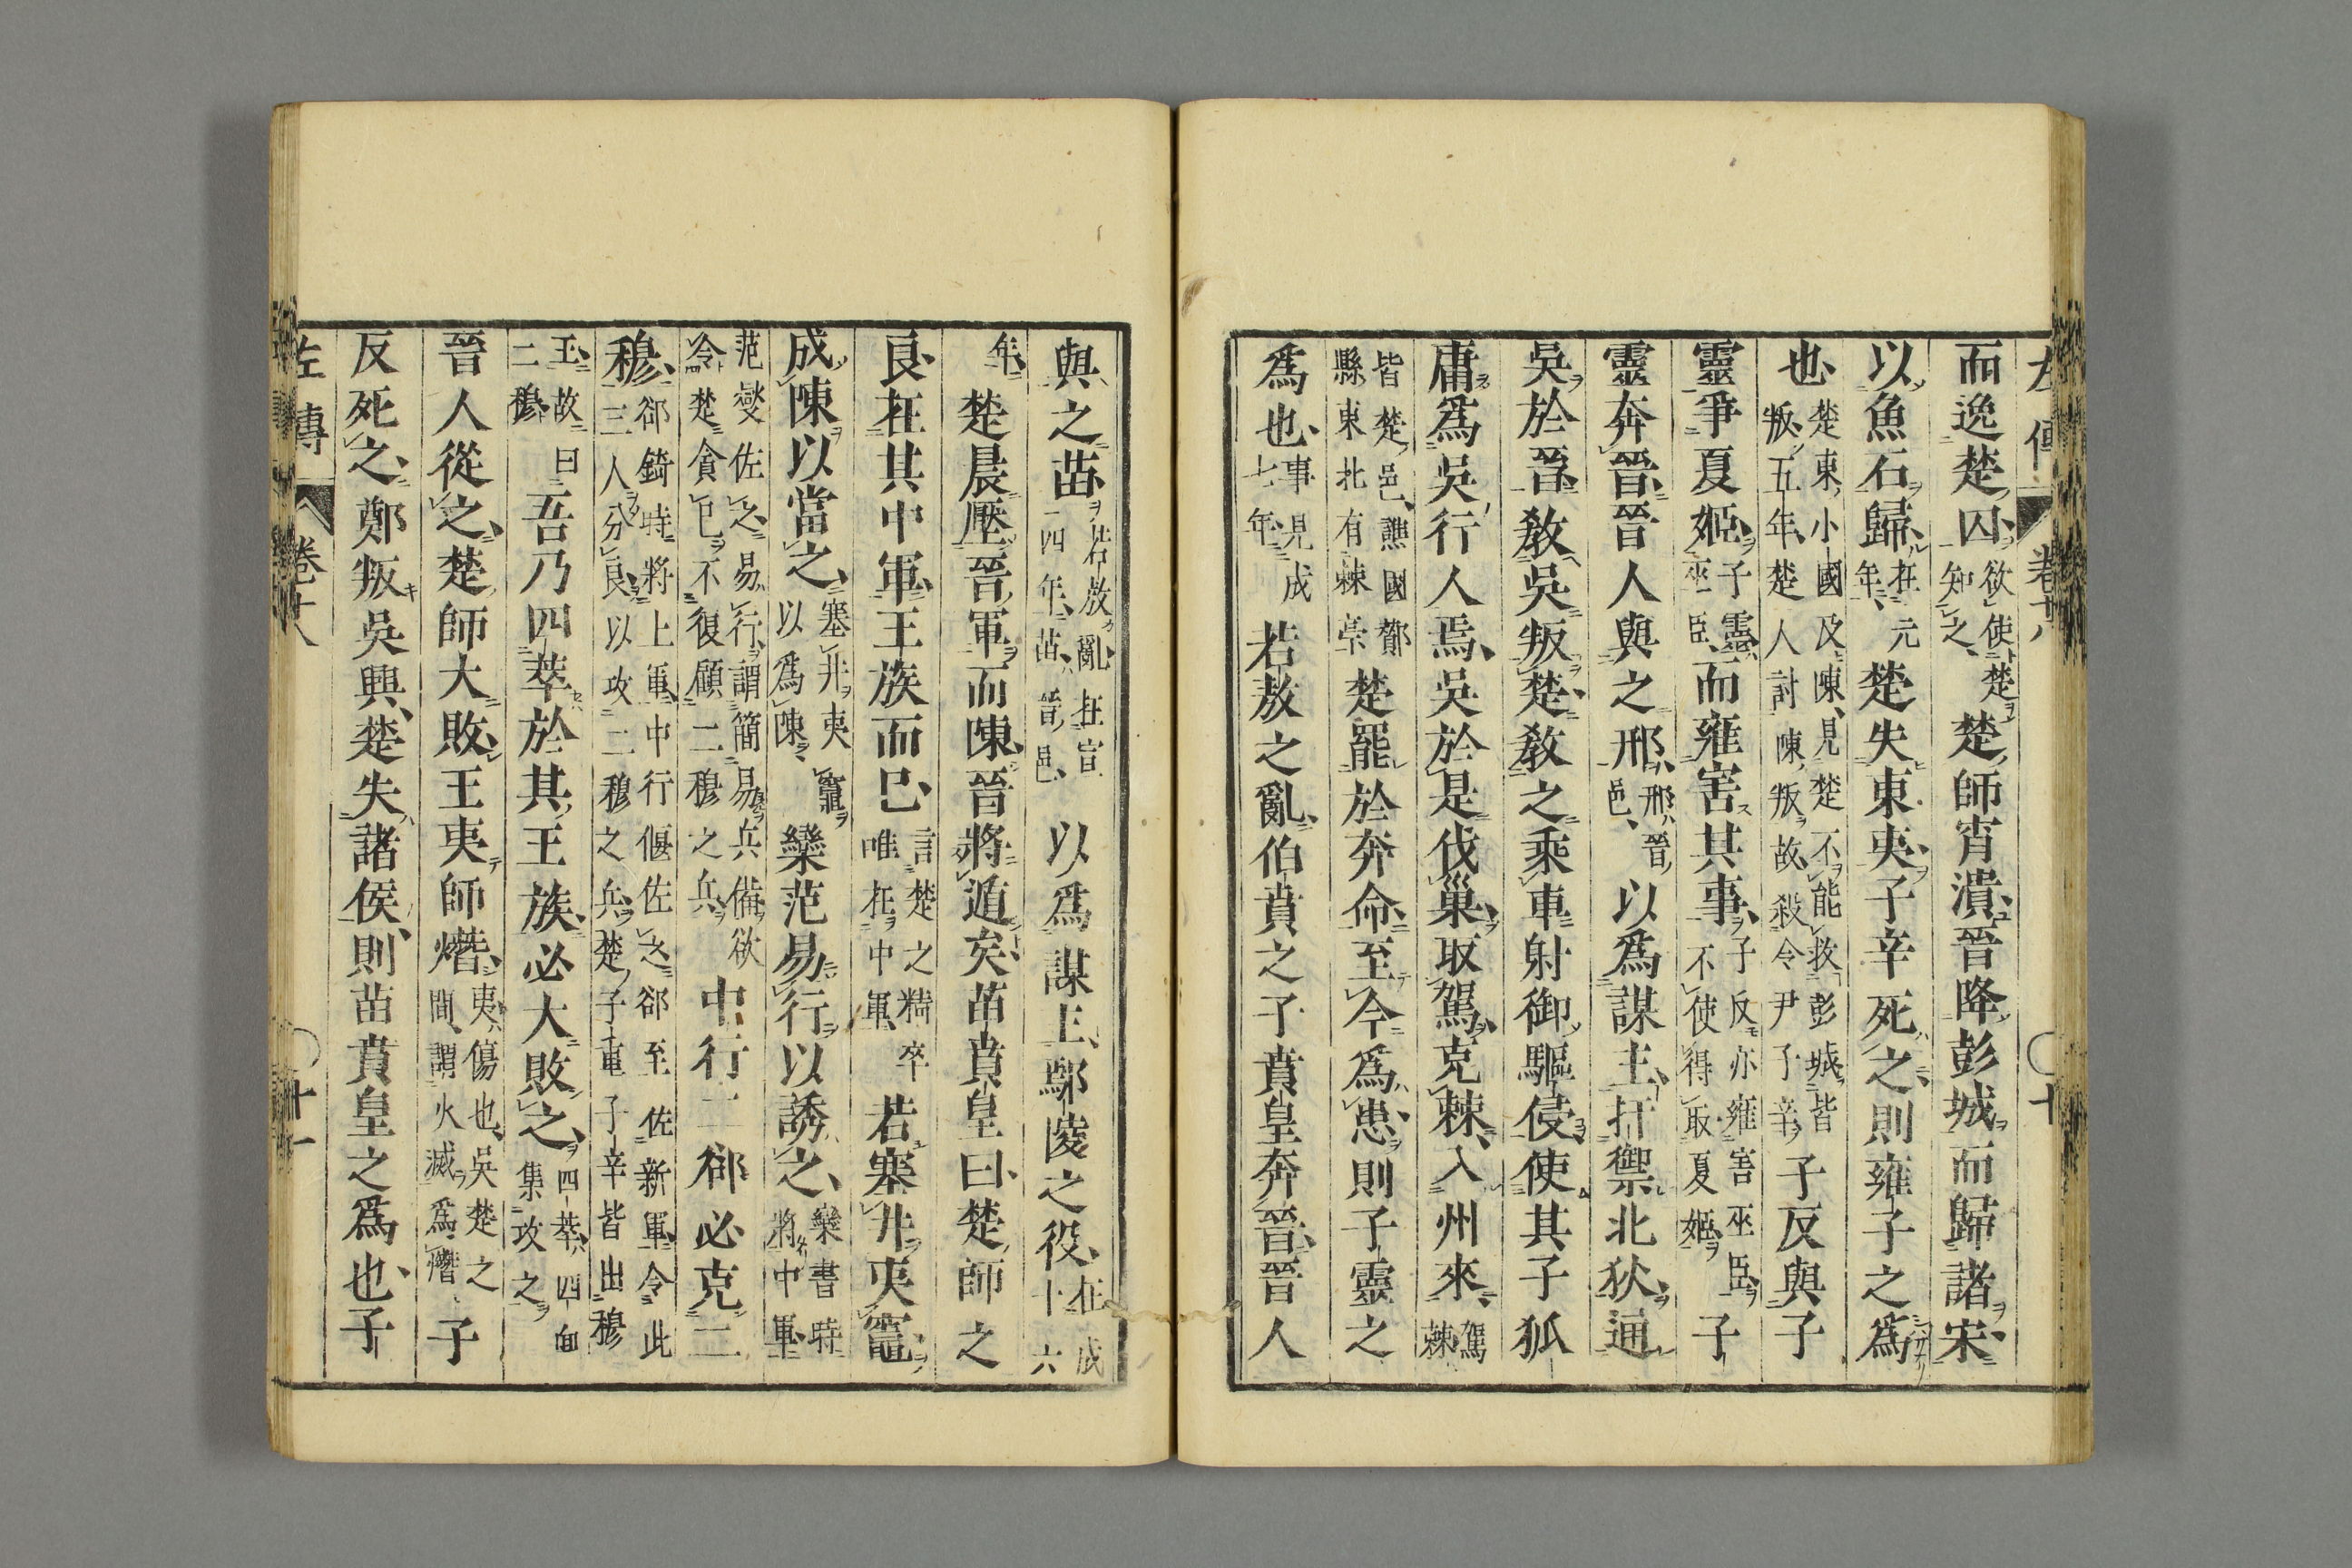 左傳 卷十八 〇十
而逸楚囚欲使楚知之楚師宵潰晉降彭城而歸諸宋
以魚石歸在元年楚失東夷子辛死之則雍子之爲
也楚東小國及陳見楚不能救彭城皆叛五年楚人討陳叛故殺令尹子辛子反與子
靈爭夏姬子靈巫臣而雍害其事子反亦雍害巫臣不使得取夏姬子
靈奔晉晉人與之邢邢晉邑以爲謀主扞禦北狄通
吳於晉教吳叛楚教之乘車射御驅侵使其子狐
庸爲吳行人焉吳於是伐巢取駕克棘入州來駕棘
皆楚邑譙國酇縣東北有棘亭楚罷於奔命至今爲患則子靈之
爲也事見成七年若敖之亂伯賁之子賁皇奔晉晉人
與之苗若敖亂在宣四年苗晉邑以爲謀主鄢陵之役在成十六
年楚晨壓晉軍而陳晉將遁矣苗賁皇曰楚師之
良在其中軍王族而已言楚之精卒唯在中軍若塞井夷竈
成陳以當之塞井夷竈以爲陳欒范易行以誘之欒書時將中軍
范燮佐之易行謂簡易兵備欲令楚貪已不復顧二穆之兵中行二郤必克二
穆郤錡時將上軍中行偃佐之郤至佐新軍令此三人分良以攻二穆之兵楚子重子辛皆出穆
王故曰二穆吾乃四萃於其王族必大敗之四萃四面集攻之
晉人從之楚師大敗王夷師熸夷傷也吳楚之間謂火滅爲熸子
反死之鄭叛吳興楚失諸侯則苗賁皇之爲也子
左傳 卷十八 〇十一